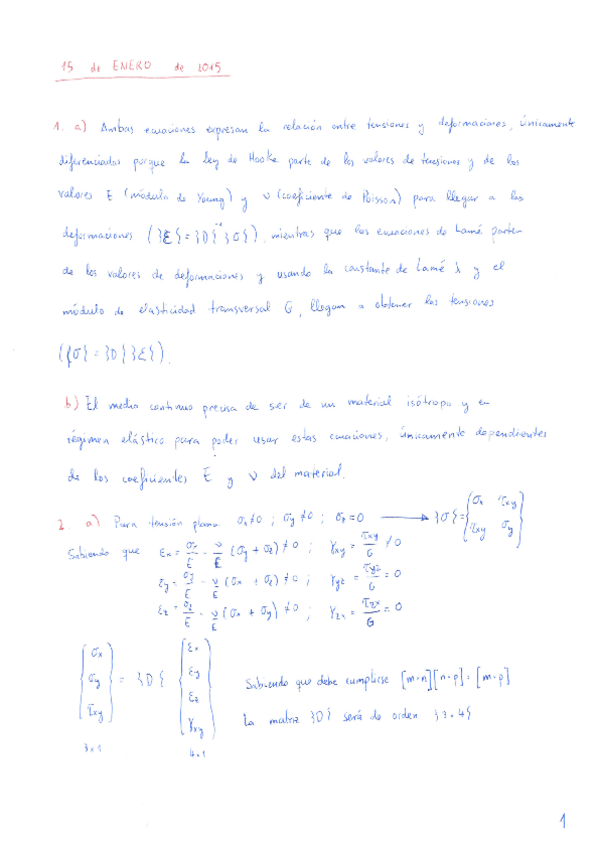 15 de ENERO de 2015
1. a) Ambas ecuaciones expresan la relación entre tensiones y deformaciones, únicamente
diferenciadas porque la ley de Hooke parte de los valores de tensiones y de los
valores E (módulo de Young) y ν (coeficiente de Poisson) para llegar a las
deformaciones ({ε}={D}⁻¹{σ}), mientras que las ecuaciones de Lamé parten
de los valores de deformaciones y usando la constante de Lamé λ y el
módulo de elasticidad transversal G, llegan a obtener las tensiones
({σ}={D}{ε}).
b) El medio continuo precisa de ser de un material isótropo y en
régimen elástico para poder usar estas ecuaciones, únicamente dependientes
de los coeficientes E y ν del material.
2. a) Para tensión plana σx≠0 ; σy≠0 ; σz=0 → {σ}=[σx τxy; τxy σy]
Sabiendo que εx = σx/E - ν/E (σy + σz) ≠ 0 ; γxy = τxy/G ≠ 0
εy = σy/E - ν/E (σx + σz) ≠ 0 ; γyz = τyz/G = 0
εz = σz/E - ν/E (σx + σy) ≠ 0 ; γzx = τzx/G = 0
{σx σy τxy} = {D} {εx εy εz γxy}
Sabiendo que debe cumplirse [m·n][n·p]=[m·p]
la matriz {D} será de orden {3·4}
3×1 4×1
1